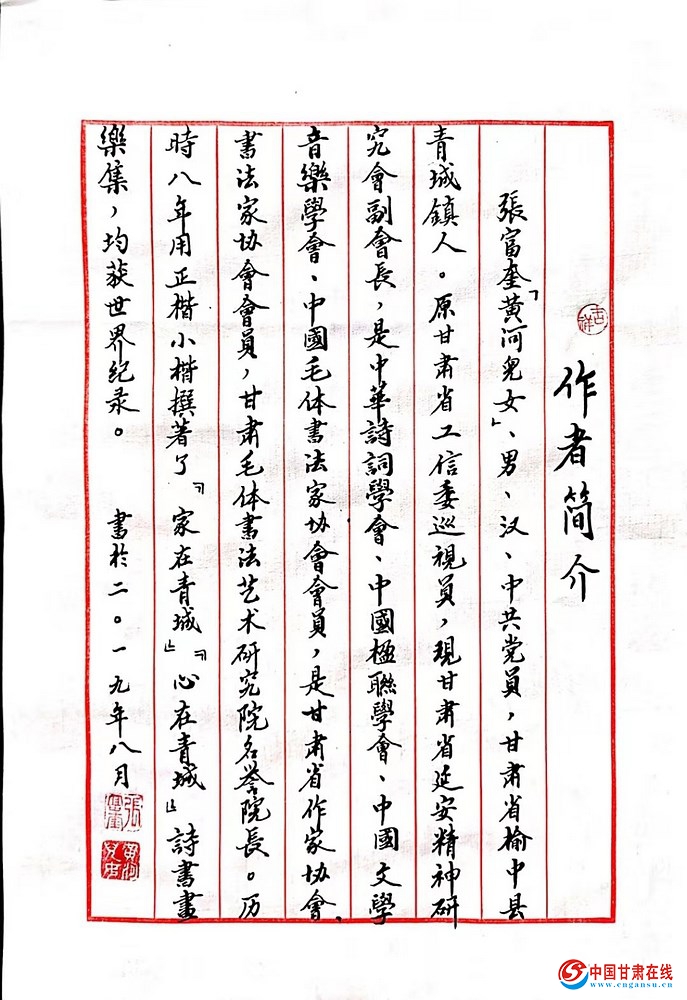 作者简介
張富奎「黄河兒女」、男、汉、中共党員，甘肃省榆中县
青城鎮人。原甘肃省工信委巡視員，現甘肃省延安精神研
究會副會長，是中華詩詞學會、中國楹聯學會、中國文學
音樂學會、中國毛体書法家协會會員，是甘肃省作家协會、
書法家协會會員，甘肃毛体書法艺术研究院名誉院長。历
時八年用正楷小楷撰著了『家在青城』『心在青城』詩書畫
樂集，均获世界纪录。 書於二。一九年八月
吉祥
中国甘肃在线
www.cngansu.cn